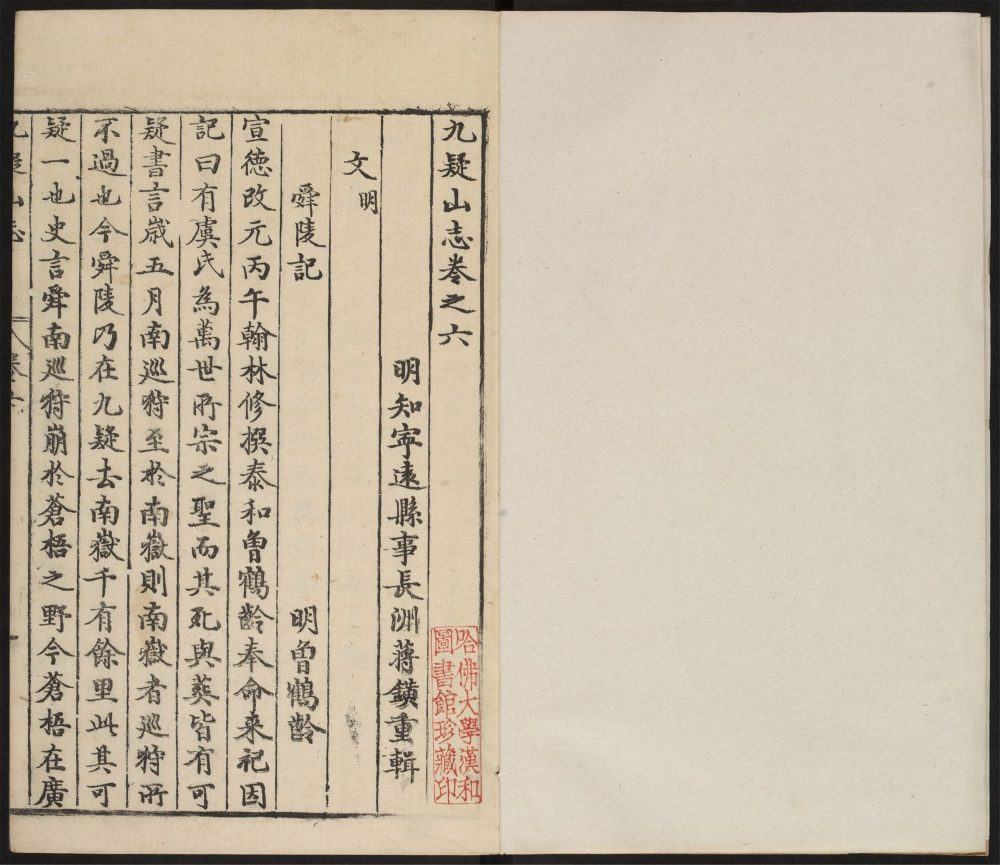 九疑山志卷之六
明知寜遠縣事長洲蔣鐄重輯
文明
舜陵記 明曾鶴齡
宣德改元丙午翰林修撰泰和曾鶴齡奉命来祀因
記曰有虞氏為萬世所宗之聖而其死與葬皆有可
疑書言嵗五月南巡狩至於南嶽則南嶽者巡狩所
不過也今舜陵乃在九疑去南嶽千有餘里此其可
疑一也史言舜南巡狩崩於蒼梧之野今蒼梧在廣
九疑山志
哈佛大學漢和
圖書館珍藏印